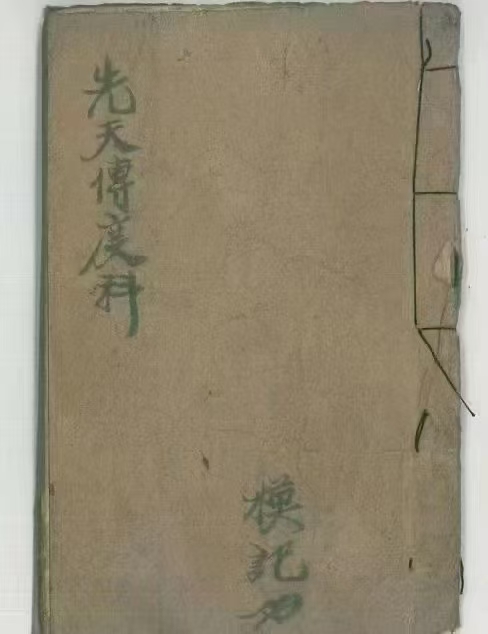 先天傳度科
記